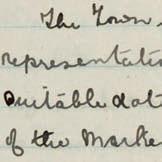 The Town
representatio
suitable dat
of the Marke